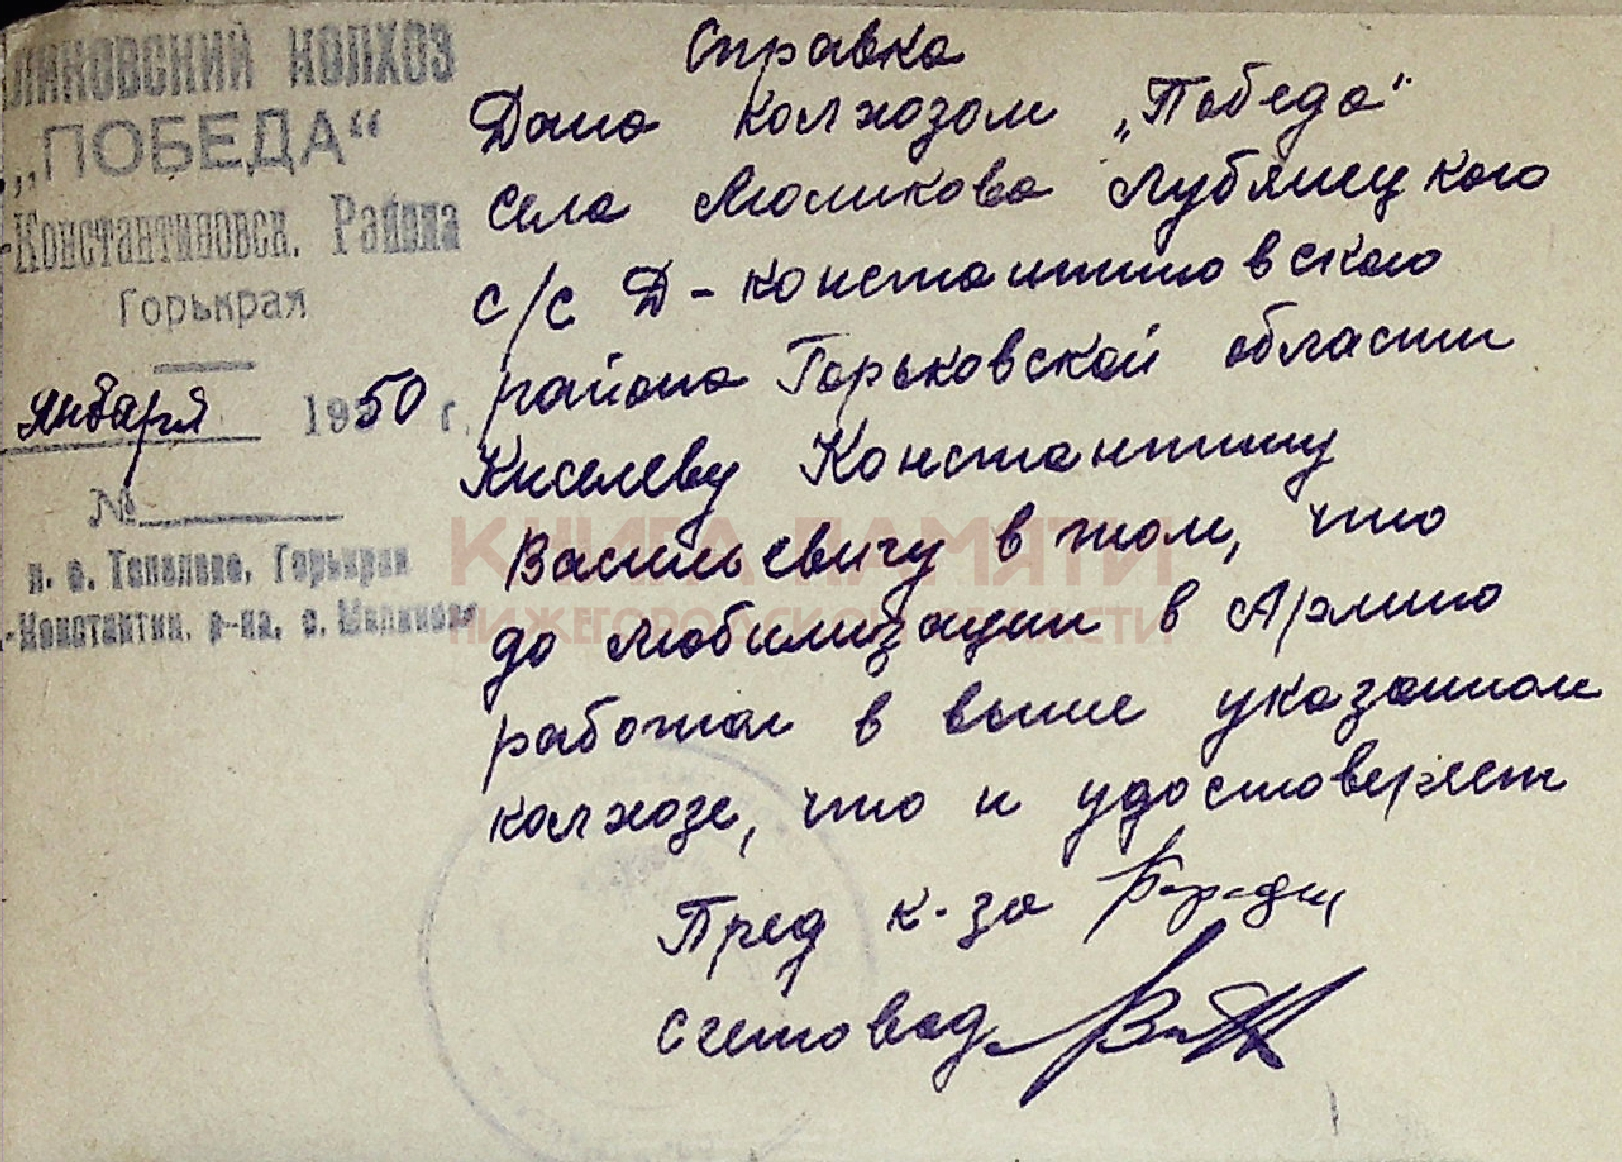 ЛИКОВСКИЙ КОЛХОЗ
„ПОБЕДА“
-Константиновск. Района
Горькрая
января 1950 г.
№
п. о. Горькрая
-Константин. р-на, с.
Справка
Дана колхозом „Победа“
села Меликова Лубянецкого
с/с Д-константиновского
района Горьковской области
Киселеву Константину
Васильевичу в том, что
до мобилизации в Армию
работал в выше указанном
колхозе, что и удостоверяет
Пред к-за
счетовод
КНИГА ПАМЯТИ
НИЖЕГОРОДСКОЙ ОБЛАСТИ